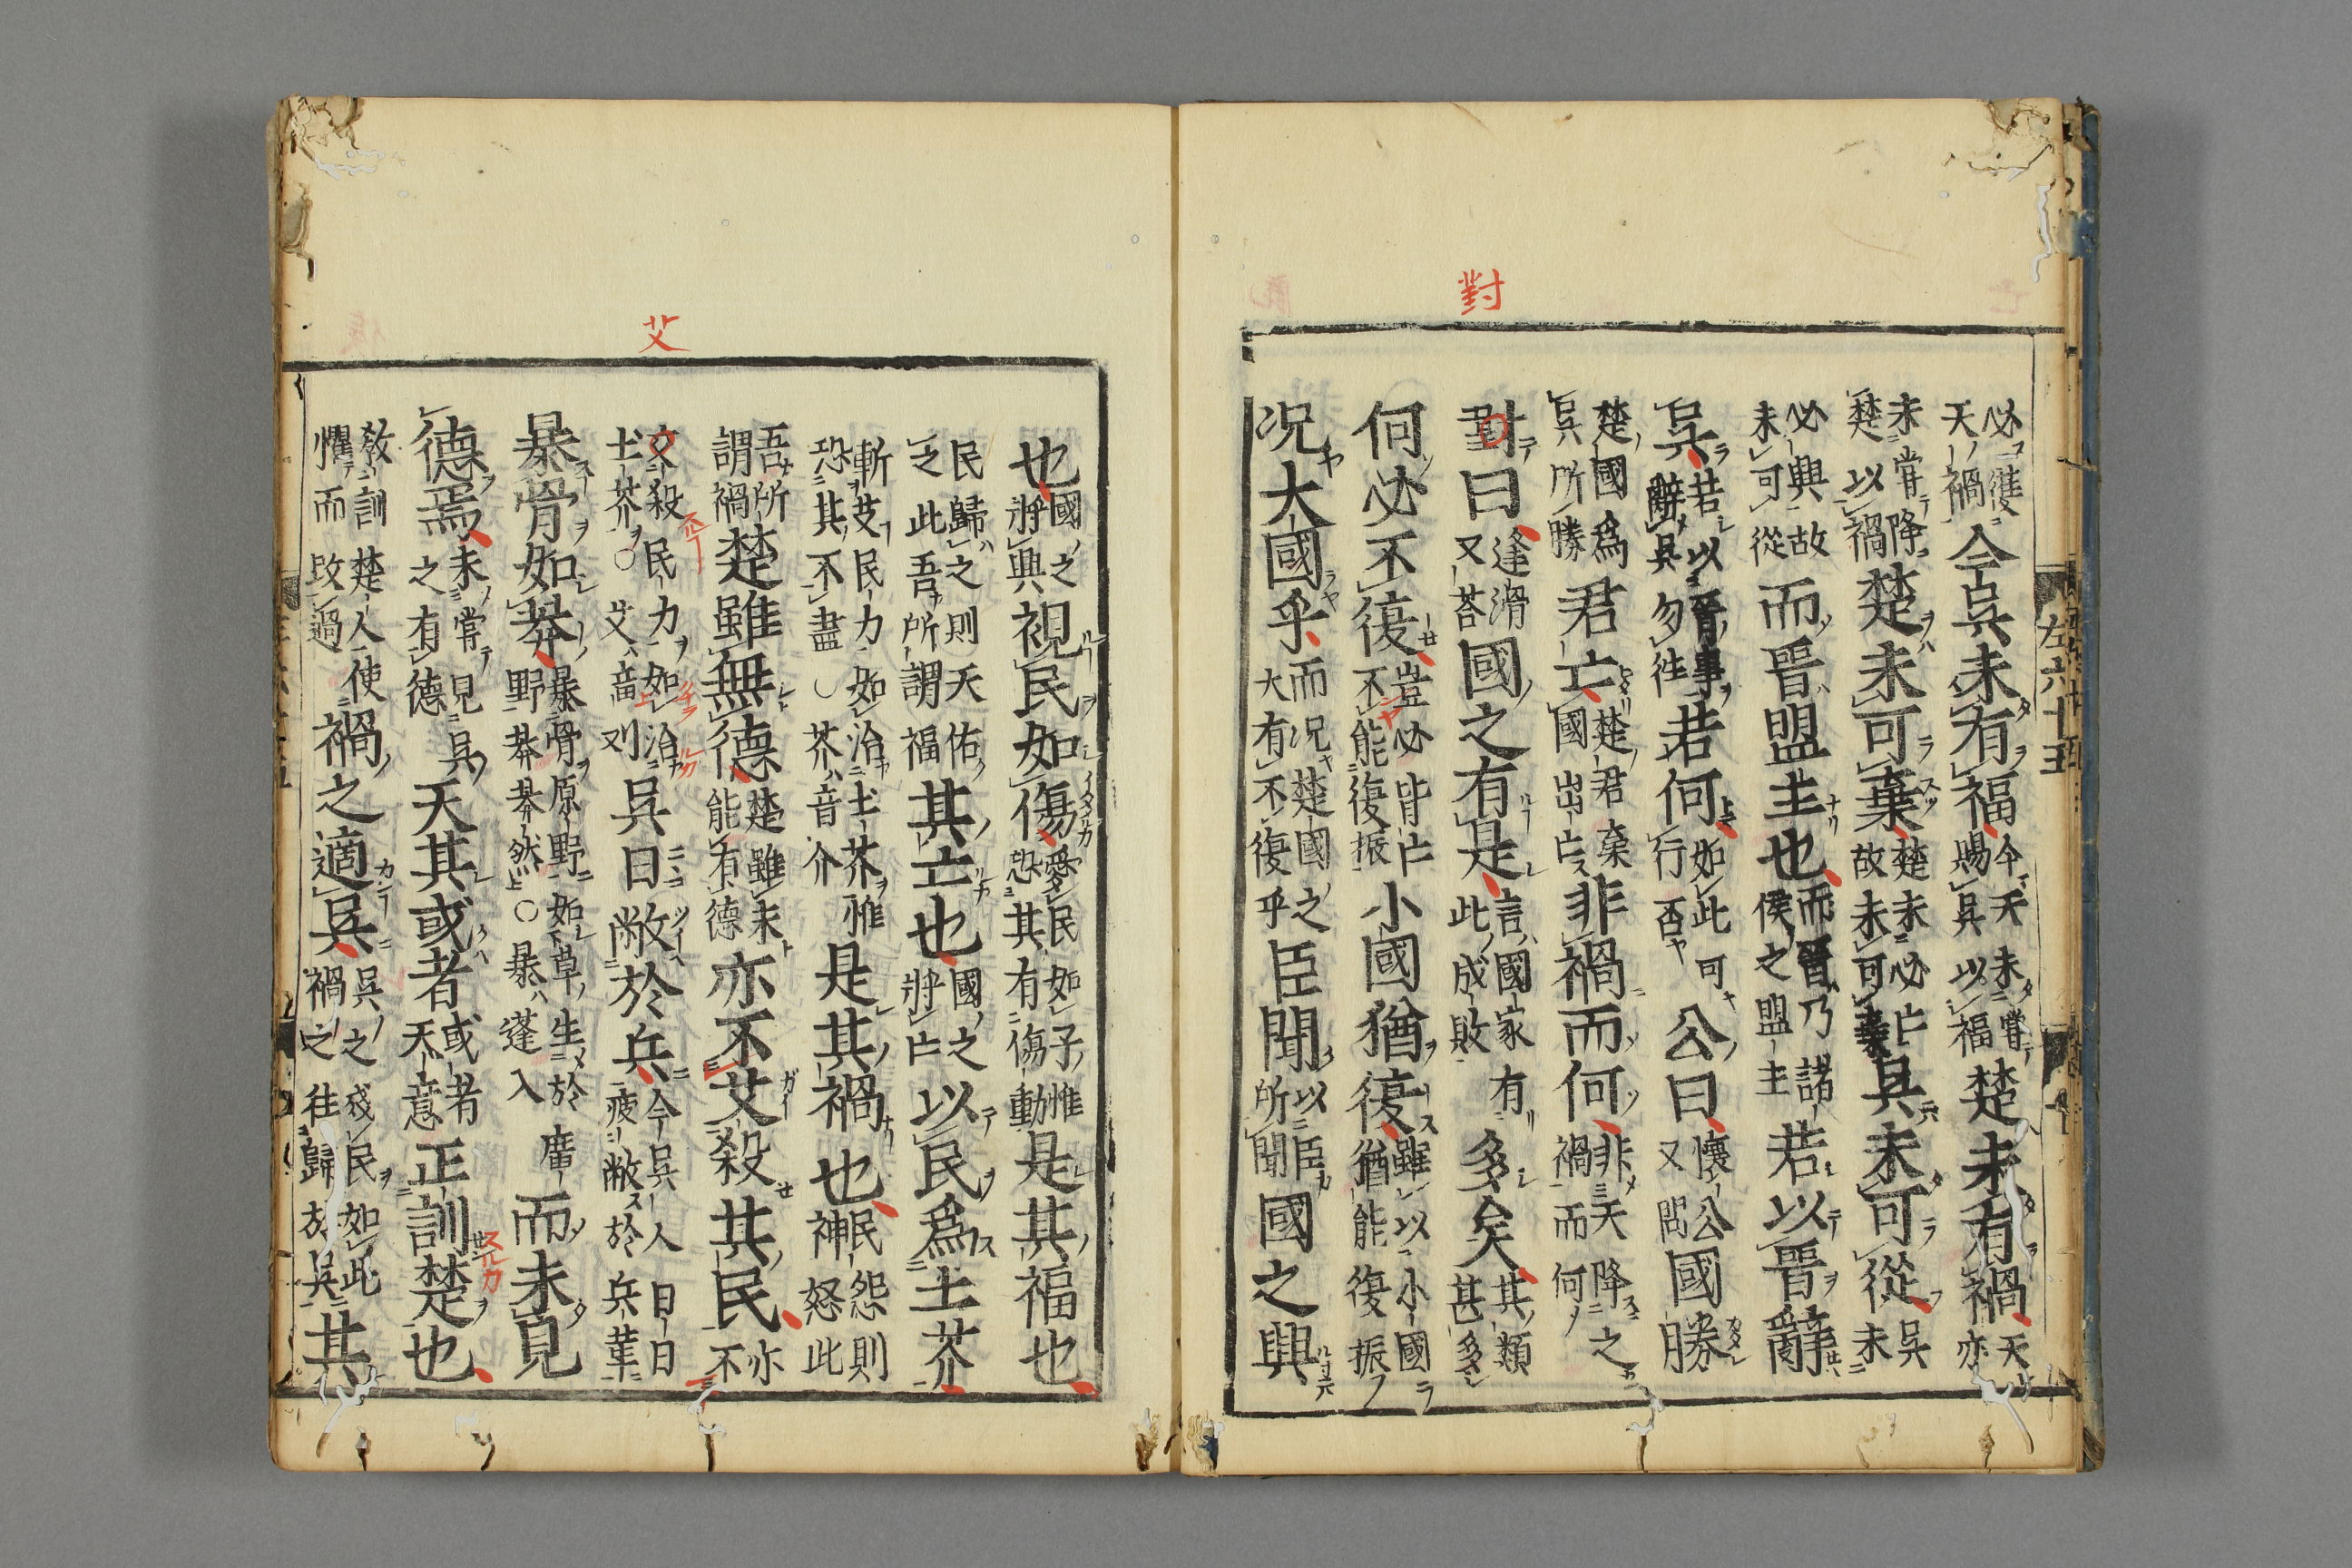 對
左六十五
必天禍今吳未有福今天未嘗賜吳以福楚未有禍天亦
未嘗降楚以禍楚未可棄楚未必亡故未可棄吳未可從吳未
必興故未可從而晉盟主也而晉乃諸侯之盟主若以晉辭
吳若以晉事辭吳勿往若何如此可行否公曰懷公又問國勝
楚國爲吳所勝君亡楚君棄國出亡非禍而何非天降之禍而何
對曰逢滑又荅國之有是言國家有此成敗多矣其類甚多
何必不復豈必皆亡不能復振小國猶復雖以小國猶能復振
况大國乎而况楚國之大有不復乎臣聞以臣所聞國之興
艾
也國之將興視民如傷愛民如子惟恐其有傷動是其福也
民歸之則天佑之此吾所謂福其亡也國之將亡以民爲土芥
斬艾民力如治土芥惟恐其不盡○芥音介是其禍也民怨則神怒此
吾所謂禍楚雖無德楚雖未能有德亦不艾殺其民亦不
艾殺民力如治土芥○艾音刈吳日敝於兵今吳人日日疲敝於兵革
暴骨如莽暴骨原野如草生於廣野莽莽然○暴蓬入而未見
德焉未嘗見吳之有德天其或者或者天意正訓楚也
敎訓楚人使懼而改過禍之適吳吳之殘民如此禍之往歸於吳其